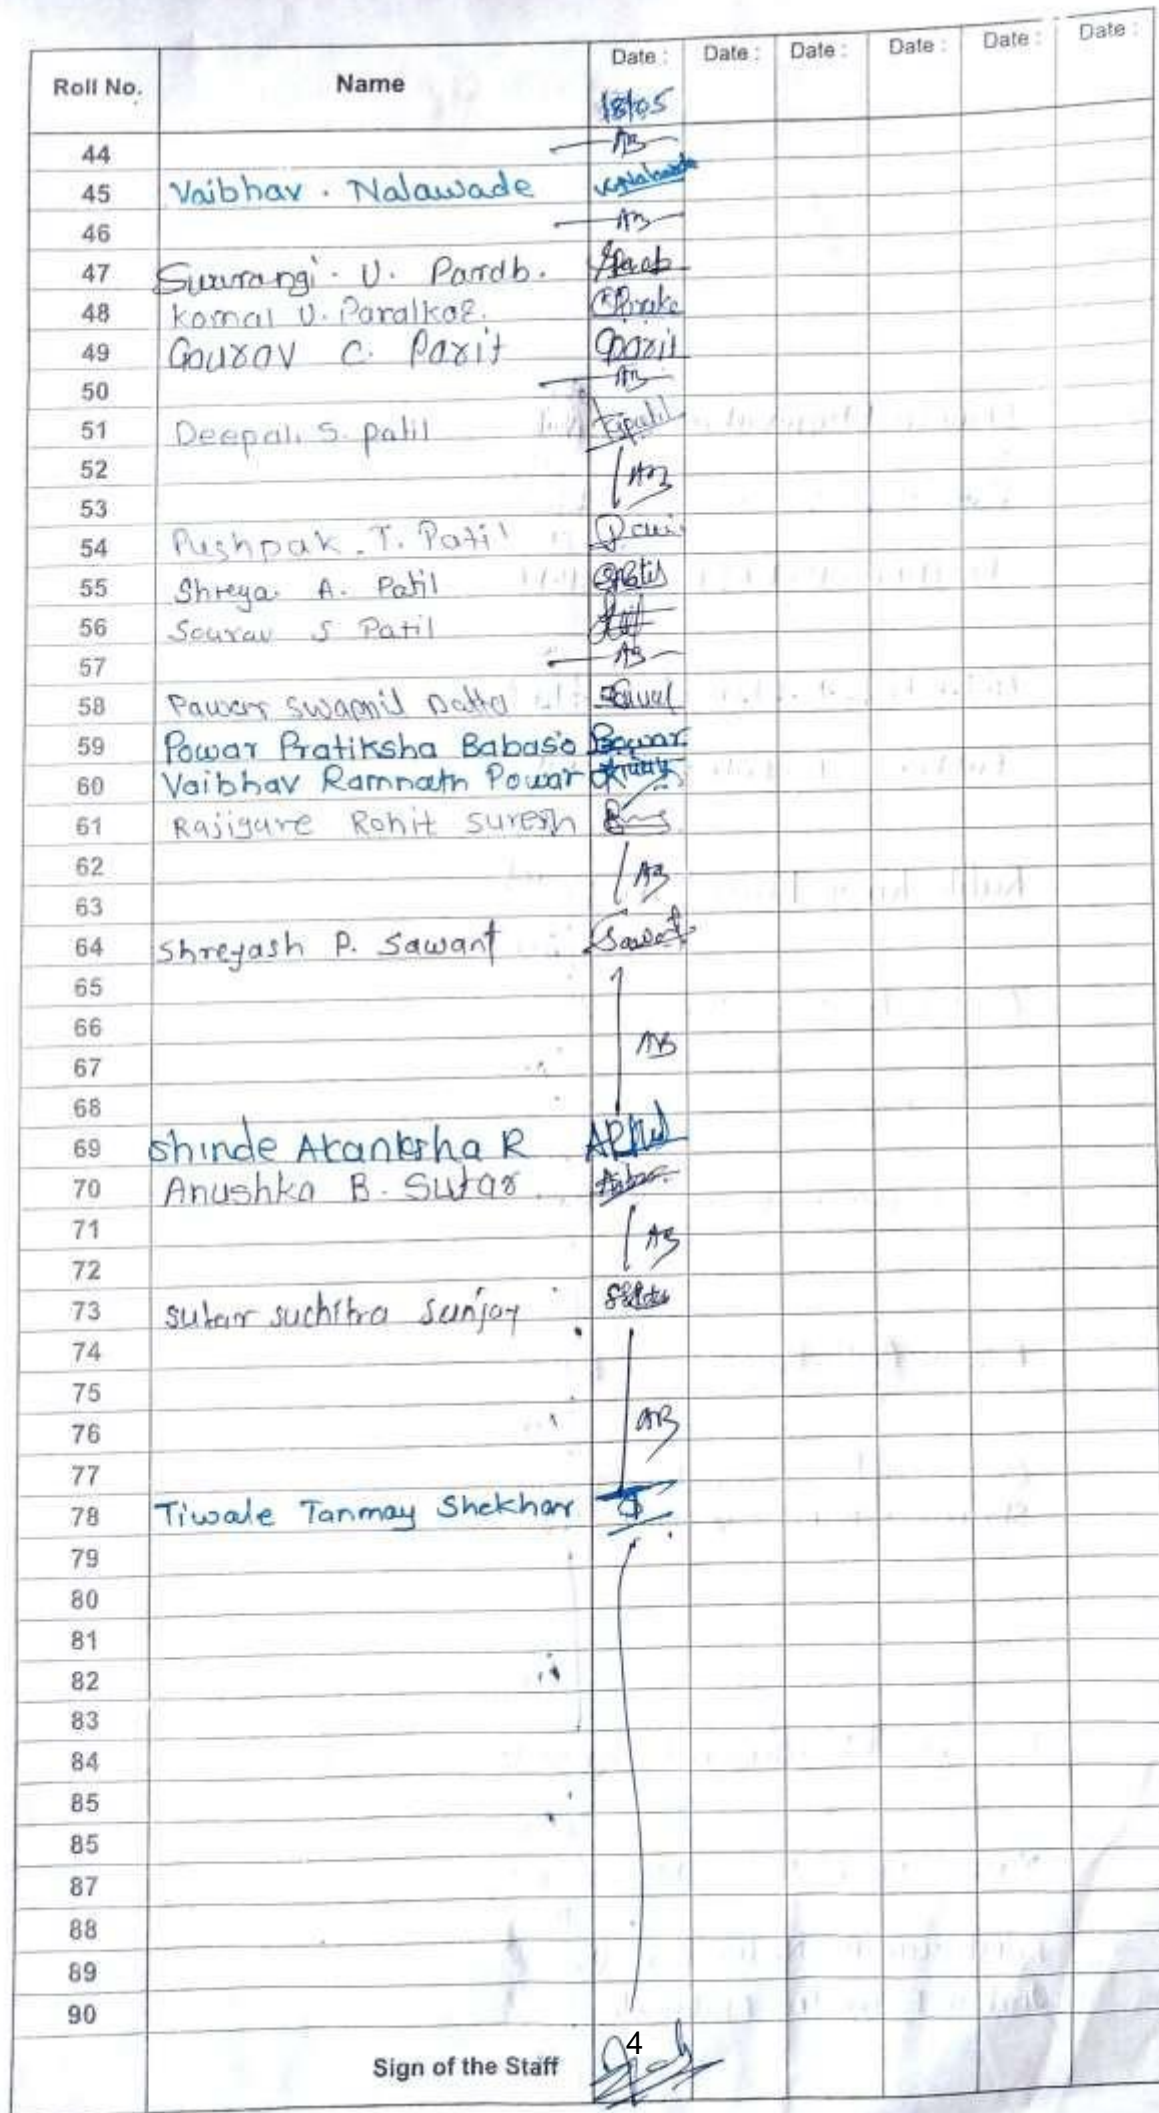 Roll No. Name Date : Date : Date : Date : Date : Date :
18/05
44 AB
45 Vaibhav . Nalawade
46 AB
47 U. Pardb.
48 Komal U. Paralkar.
49 Gourav C. Parit Gparit
50 AB
51 Deepali S. patil
52 AB
53
54 Pushpak . T. Patil
55 Shreya A. Patil
56 Sourav S Patil
57 AB
58 Pawar Swapnil Datta
59 Powar Pratiksha Babaso Powar
60 Vaibhav Ramnath Powar
61 Rajigare Rohit Suresh
62 AB
63
64 Shreyash P. Sawant Sawant
65
66 AB
67
68
69 Shinde Akanksha R
70 Anushka B. Sutar
71 AB
72
73 Sutar Suchitra Sanjay
74
75
76 AB
77
78 Tiwale Tanmay Shekhar
79
80
81
82
83
84
85
85
87
88
89
90
Sign of the Staff
4